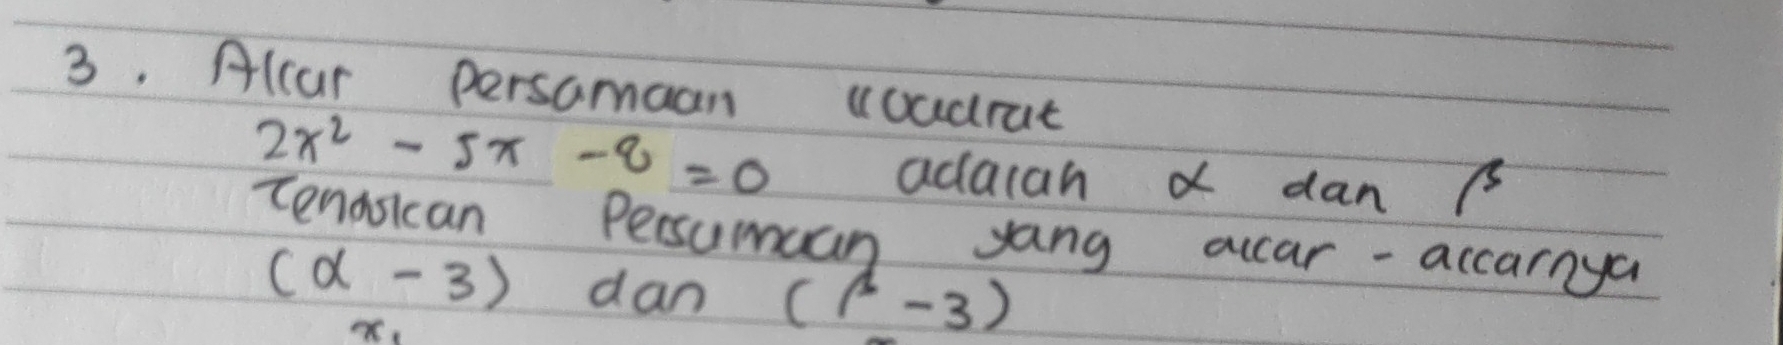 3. Akar persamaan kuadrat
2x² - 5x - 8 = 0 adalah α dan β
Tentukan Persamaan yang akar - akarnya
(α - 3) dan (β - 3)
x₁